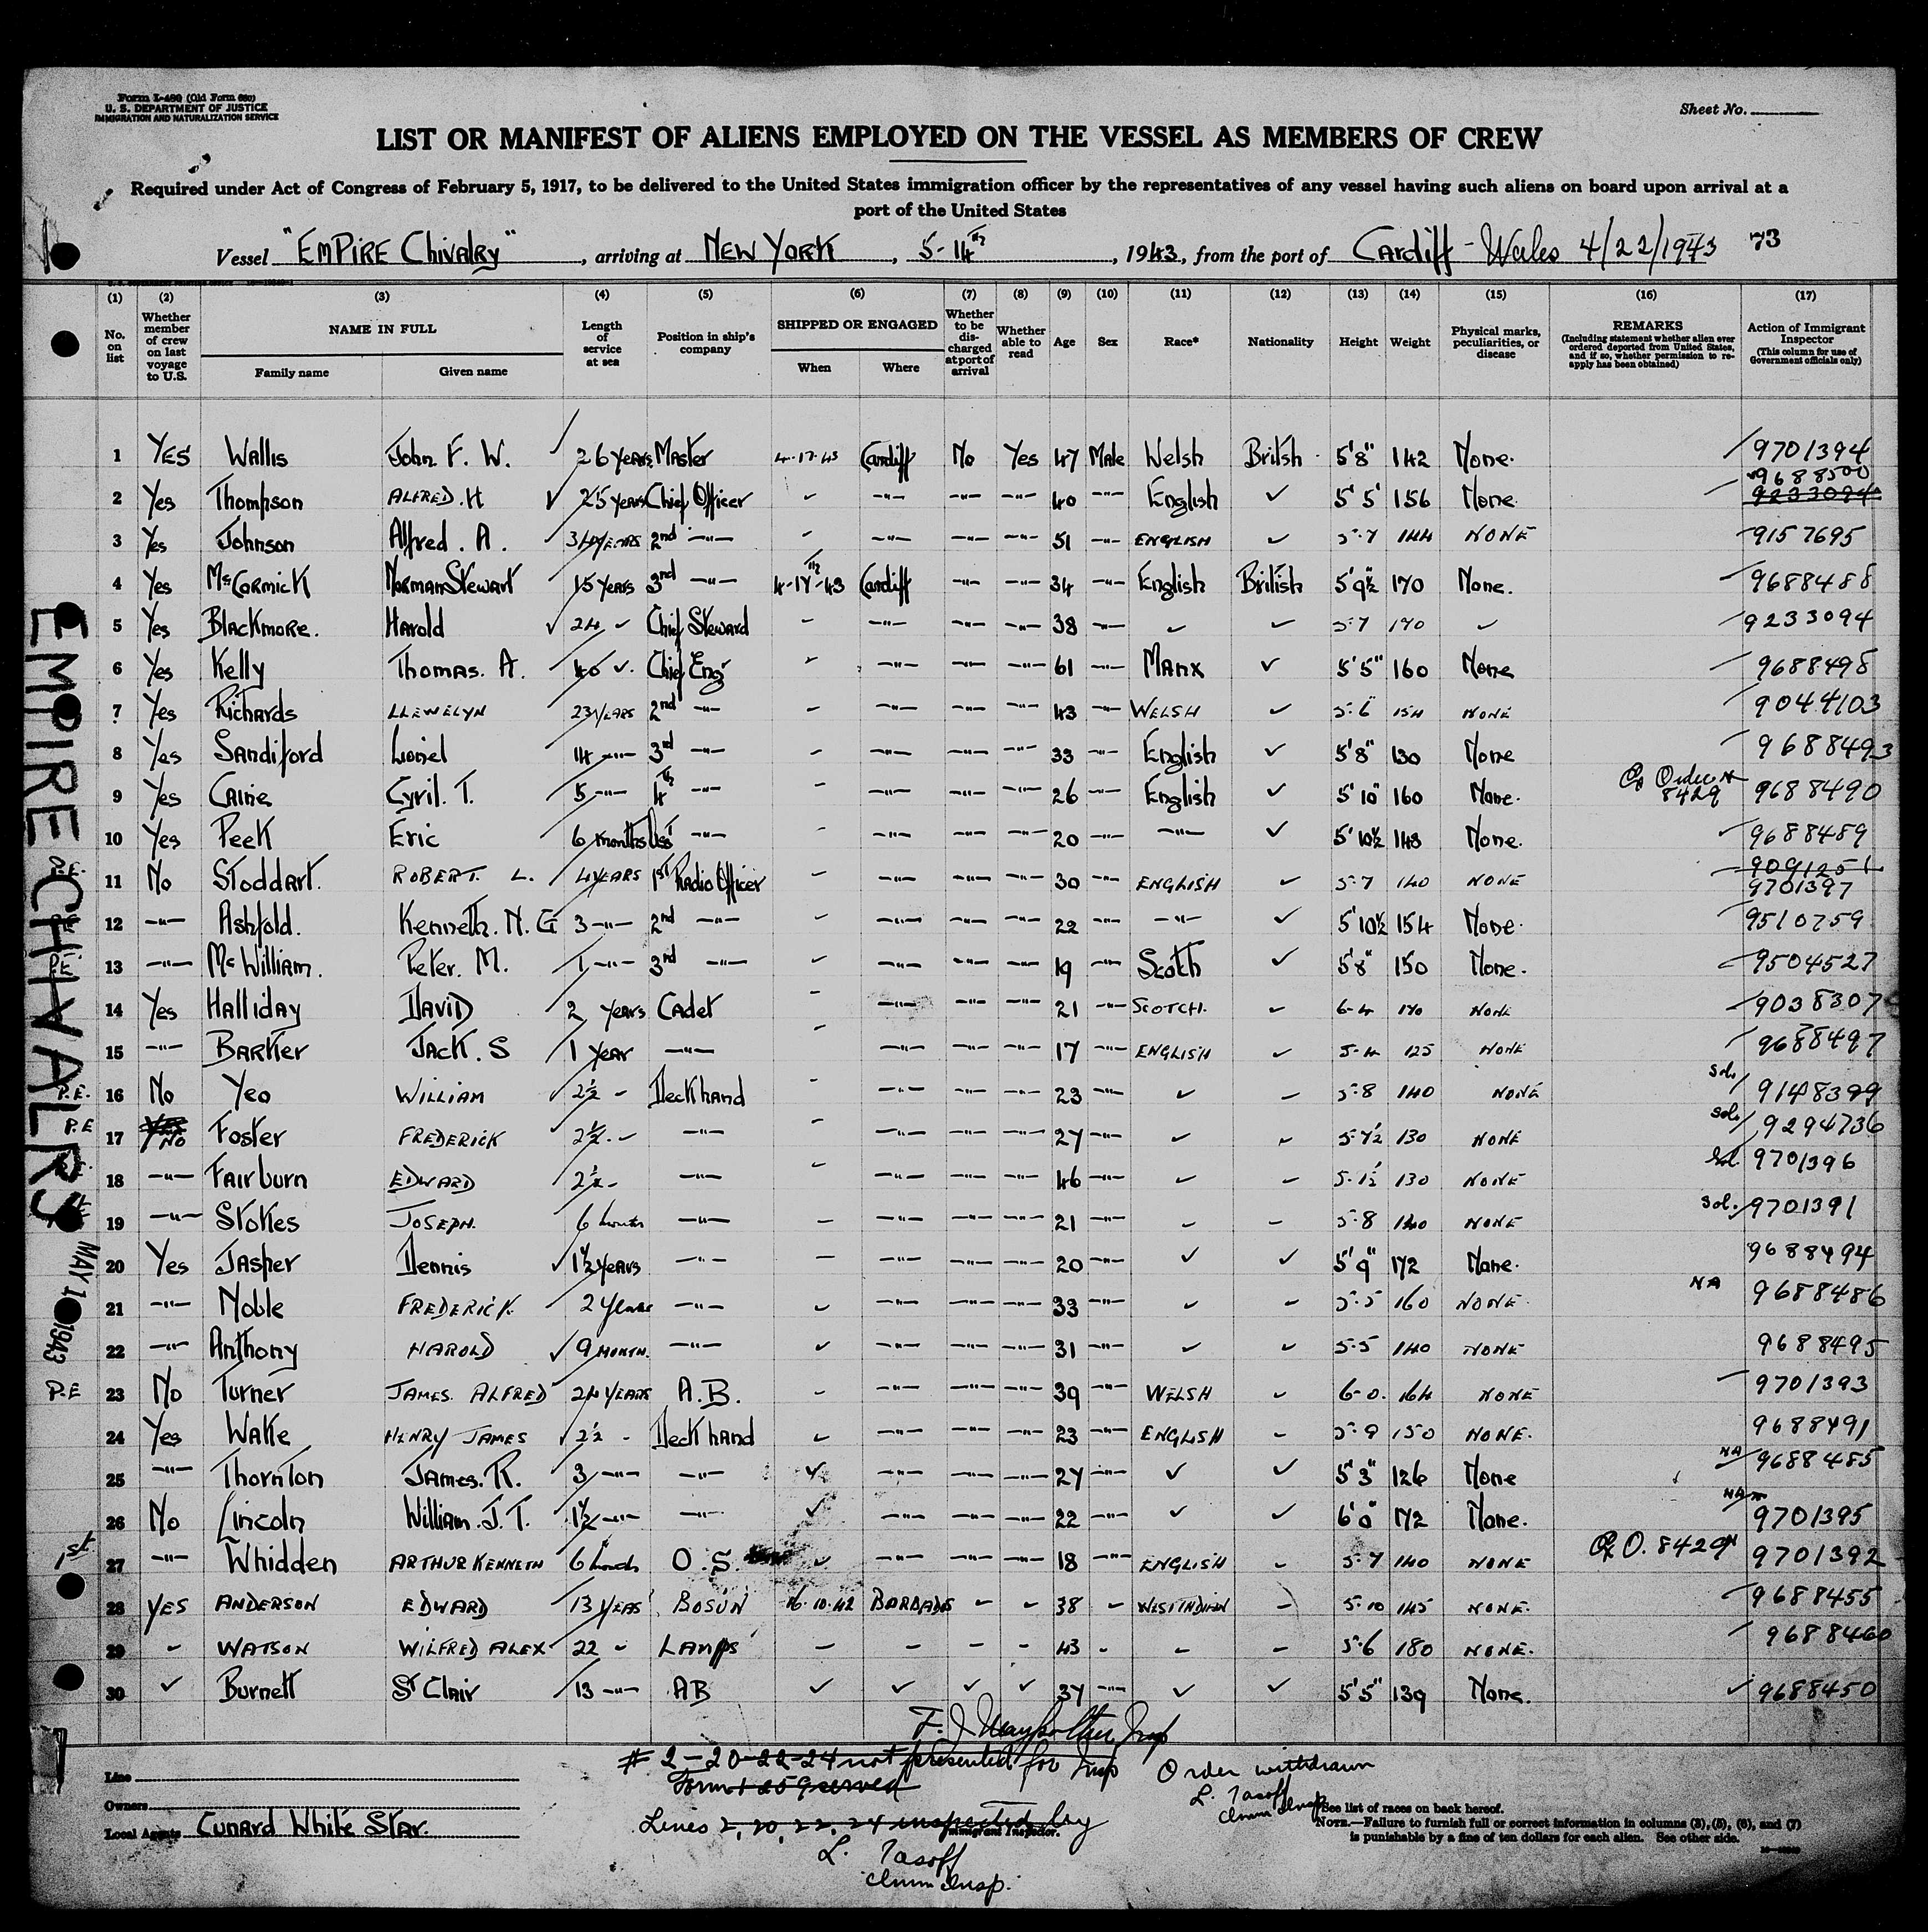 Form I-480 (Old Form 680)
U. S. DEPARTMENT OF JUSTICE
IMMIGRATION AND NATURALIZATION SERVICE
Sheet No.
LIST OR MANIFEST OF ALIENS EMPLOYED ON THE VESSEL AS MEMBERS OF CREW
Required under Act of Congress of February 5, 1917, to be delivered to the United States immigration officer by the representatives of any vessel having such aliens on board upon arrival at a
port of the United States
Vessel "EMPIRE Chivalry", arriving at NEW YORK, 5-14th, 1943, from the port of Cardiff - Wales 4/22/1943 73
(1) (2) (3) (4) (5) (6) (7) (8) (9) (10) (11) (12) (13) (14) (15) (16) (17)
No. on list
Whether member of crew on last voyage to U.S.
NAME IN FULL
Family name Given name
Length of service at sea
Position in ship's company
SHIPPED OR ENGAGED
When Where
Whether to be discharged at port of arrival
Whether able to read
Age Sex Race* Nationality Height Weight
Physical marks, peculiarities, or disease
REMARKS
(Including statement whether alien ever ordered deported from United States, and if so, whether permission to reapply has been obtained)
Action of Immigrant Inspector
(This column for use of Government officials only)
1 YES Wallis John F. W. 26 years Master 4-17-43 Cardiff No Yes 47 Male Welsh British 5'8" 142 None. 9701394
2 Yes Thompson ALFRED. H 25 years Chief Officer ✓ -"- -"- -"- 40 -"- English ✓ 5'5' 156 None 9688500 9233094
3 Yes Johnson Alfred. A. 34 YEARS 2nd -"- ✓ -"- -"- -"- 51 -"- ENGLISH ✓ 5-7 144 NONE 9157695
4 Yes McCormick Norman Stewart 15 years 3rd -"- 4-17th-43 Cardiff -"- -"- 34 -"- English British 5'9½" 170 None. 9688488
5 Yes Blackmore. Harold 24 ✓ Chief Steward - -"- -"- -"- 38 -"- ✓ ✓ 5-7 170 ✓ 9233094
6 Yes Kelly Thomas. A. 40 ✓ Chief Eng ✓ -"- -"- -"- 61 -"- Manx ✓ 5'5" 160 None 9688498
7 Yes Richards LLEWELYN 23 YEARS 2nd -"- - -"- -"- -"- 43 -"- WELSH ✓ 5-6 154 NONE 9044103
8 Yes Sandiford Lionel 14 -"- 3rd -"- - -"- -"- -"- 33 -"- English ✓ 5'8" 130 None 9688493
9 Yes Caine Cyril. T. 5 -"- 4th -"- - -"- -"- -"- 26 -"- English ✓ 5'10" 160 None. Order 8429 9688490
10 Yes Peek Eric 6 months Asst -"- - -"- -"- -"- 20 -"- -"- ✓ 5'10½ 148 None. 9688489
P.E. 11 No Stoddart. ROBERT. L. 4 YEARS 1st Radio Officer - -"- -"- -"- 30 -"- ENGLISH ✓ 5-7 140 NONE 9091251 9701397
12 -"- Ashfold. Kenneth. N. G 3 -"- 2nd -"- ✓ -"- -"- -"- 22 -"- -"- ✓ 5'10½ 154 None. 9510759
P.E. 13 -"- McWilliam. Peter. M. 1 -"- 3rd -"- ✓ -"- -"- -"- 19 -"- Scotch ✓ 5'8" 150 None. 9504527
14 Yes Halliday DAVID 2 years Cadet - -"- -"- -"- 21 -"- SCOTCH. ✓ 6-4 170 NONE 9038307
15 -"- Barker JACK. S 1 year -"- - -"- -"- -"- 17 -"- ENGLISH ✓ 5-4 125 NONE 9688497
P.E. 16 No Yeo WILLIAM 2½ - Deck hand - -"- -"- -"- 23 -"- ✓ - 5-8 140 NONE Sol. 9148399
P.E 17 YES NO Foster FREDERICK 2½ - -"- - -"- -"- -"- 27 -"- ✓ ✓ 5-7½ 130 NONE Sol. 9294736
18 -"- Fairburn EDWARD 2½ - -"- ✓ -"- -"- -"- 46 -"- ✓ - 5-1½ 130 NONE Sol. 9701396
19 -"- Stokes JOSEPH. 6 months -"- - -"- -"- -"- 21 -"- ✓ - 5-8 140 NONE Sol. 9701391
20 Yes Jasper Dennis 1½ years -"- - -"- -"- -"- 20 -"- ✓ ✓ 5'9" 172 None. 9688494
21 -"- Noble FREDERICK. 2 Years -"- ✓ -"- -"- -"- 33 -"- ✓ ✓ 5-5 160 NONE. NA 9688486
22 -"- Anthony HAROLD 9 MONTH. -"- ✓ -"- -"- -"- 31 -"- ✓ ✓ 5-5 140 NONE 9688495
P.E 23 No Turner JAMES. ALFRED 24 YEARS A.B. ✓ -"- -"- -"- 39 -"- WELSH ✓ 6-0. 164 NONE 9701393
24 Yes Wake HENRY JAMES 2½ - Deck hand ✓ -"- -"- -"- 23 -"- ENGLISH ✓ 5-9 150 NONE. 9688491
25 -"- Thornton James. R. 3 -"- -"- ✓ -"- -"- -"- 27 -"- ✓ ✓ 5'3" 126 None NA 9688485
26 No Lincoln William. J. T. 1½ -"- -"- ✓ -"- -"- -"- 22 -"- ✓ ✓ 6'0" 172 None. NA 9701395
1st 27 -"- Whidden ARTHUR KENNETH 6 months O.S. ✓ -"- -"- -"- 18 -"- ENGLISH ✓ 5-7 140 NONE O. 8429 9701392
28 YES ANDERSON EDWARD 13 YEARS BOSUN 16.10.42 BARBADOS - - 38 - WEST INDIAN - 5-10 145 NONE. 9688455
29 ✓ WATSON WILFRED ALEX 22 - LAMPS - - - - 43 - - - 5-6 180 NONE. 9688460
30 ✓ Burnett St Clair 13 -"- AB ✓ ✓ ✓ ✓ 37 -"- ✓ ✓ 5'5" 139 None. 9688450
EMPIRE CHIVALRY
MAY 1 1943
# 2-20-22-24 not presented for Insp
Form 1259 served
Order withdrawn
L. Tasoff
Imm Insp
Lines 2, 20, 22, 24 inspected by
Immigrant Inspector.
L. Tasoff
Imm Insp.
Line
Owners
Local Agents Cunard White Star.
*See list of races on back hereof.
NOTE.—Failure to furnish full or correct information in columns (3), (5), (6), and (7)
is punishable by a fine of ten dollars for each alien. See other side.